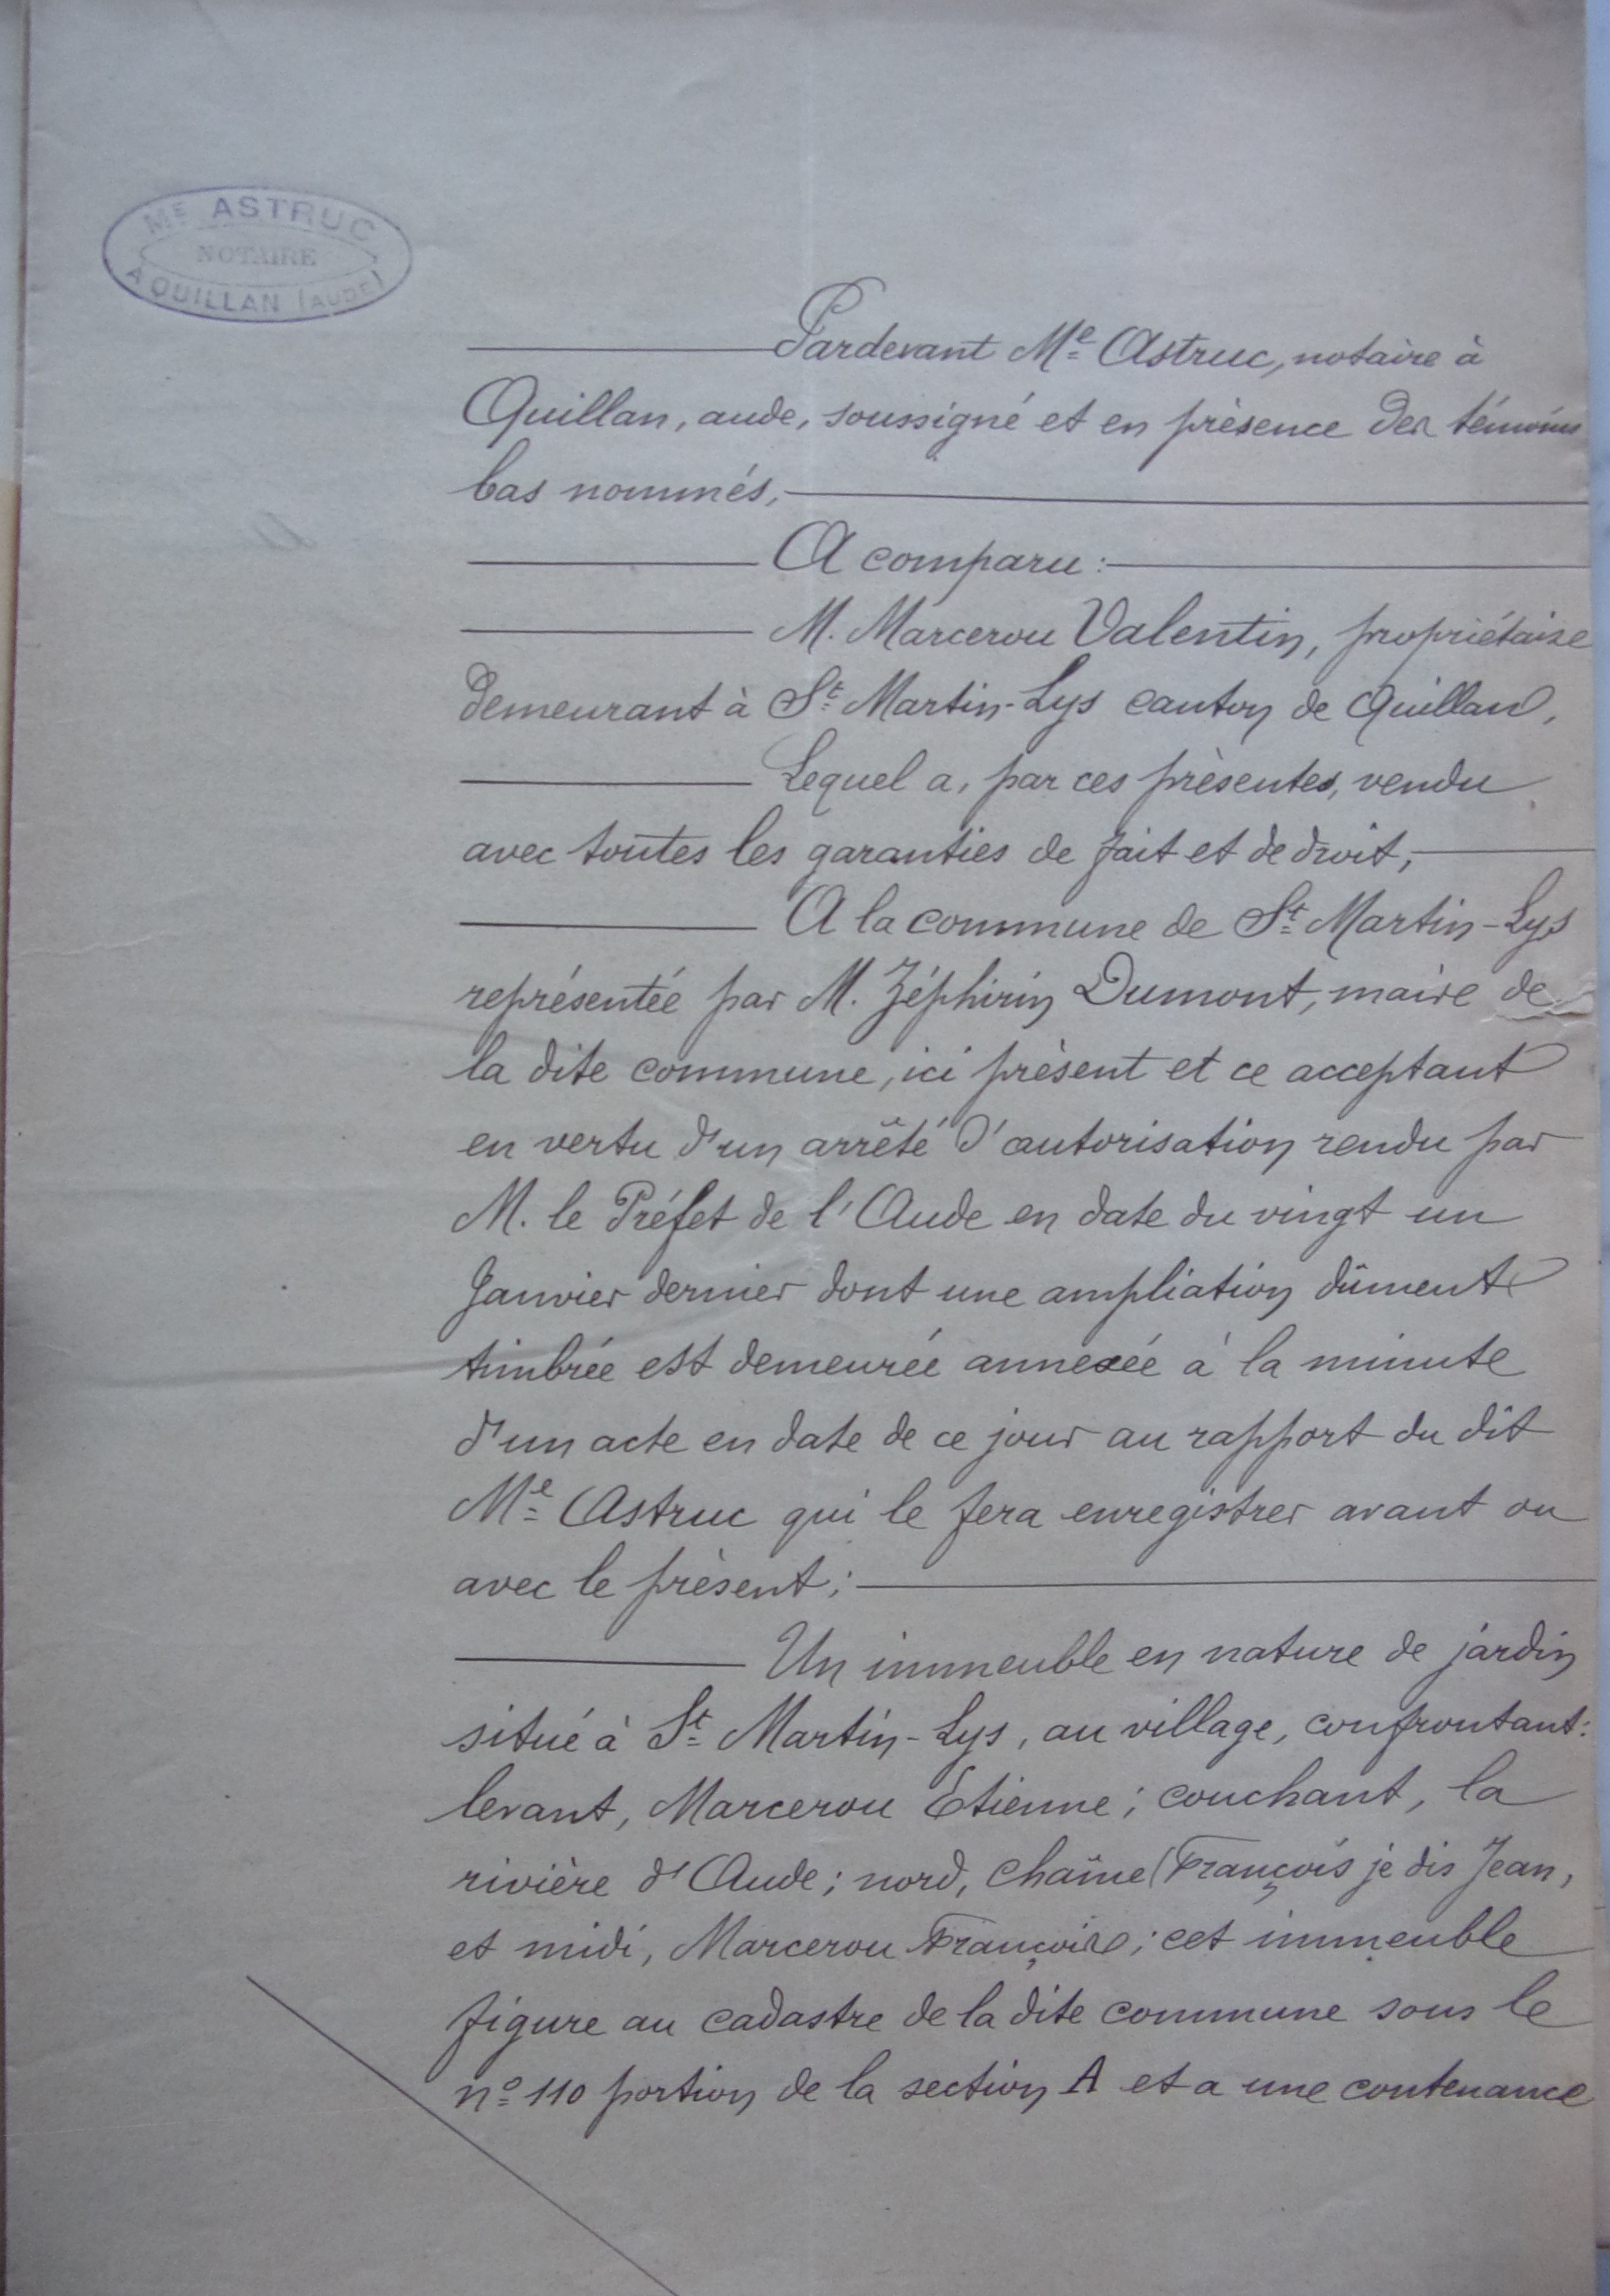 Me ASTRUC
NOTAIRE
A QUILLAN (AUDE)
Pardevant Me Astruc, notaire à
Quillan, aude, soussigné et en présence des témoins
bas nommés,
A comparu :
M. Marcerou Valentin, propriétaire
demeurant à St Martin-Lys canton de Quillan,
Lequel a, par ces présentes, vendu
avec toutes les garanties de fait et de droit,
A la commune de St Martin-Lys
représentée par M. Zéphirin Dumont, maire de
la dite commune, ici présent et ce acceptant
en vertu d'un arrêté d'autorisation rendu par
M. le Préfet de l'Aude en date du vingt un
Janvier dernier dont une ampliation dûment
timbrée est demeurée annexée à la minute
d'un acte en date de ce jour au rapport du dit
Me Astruc qui le fera enregistrer avant ou
avec le présent ;
Un immeuble en nature de jardin
situé à St Martin-Lys, au village, confrontant :
levant, Marcerou Etienne ; couchant, la
rivière d'Aude ; nord, Chaîne (François je dis Jean,
et midi, Marcerou François ; cet immeuble
figure au cadastre de la dite commune sous le
no 110 portion de la section A et a une contenance